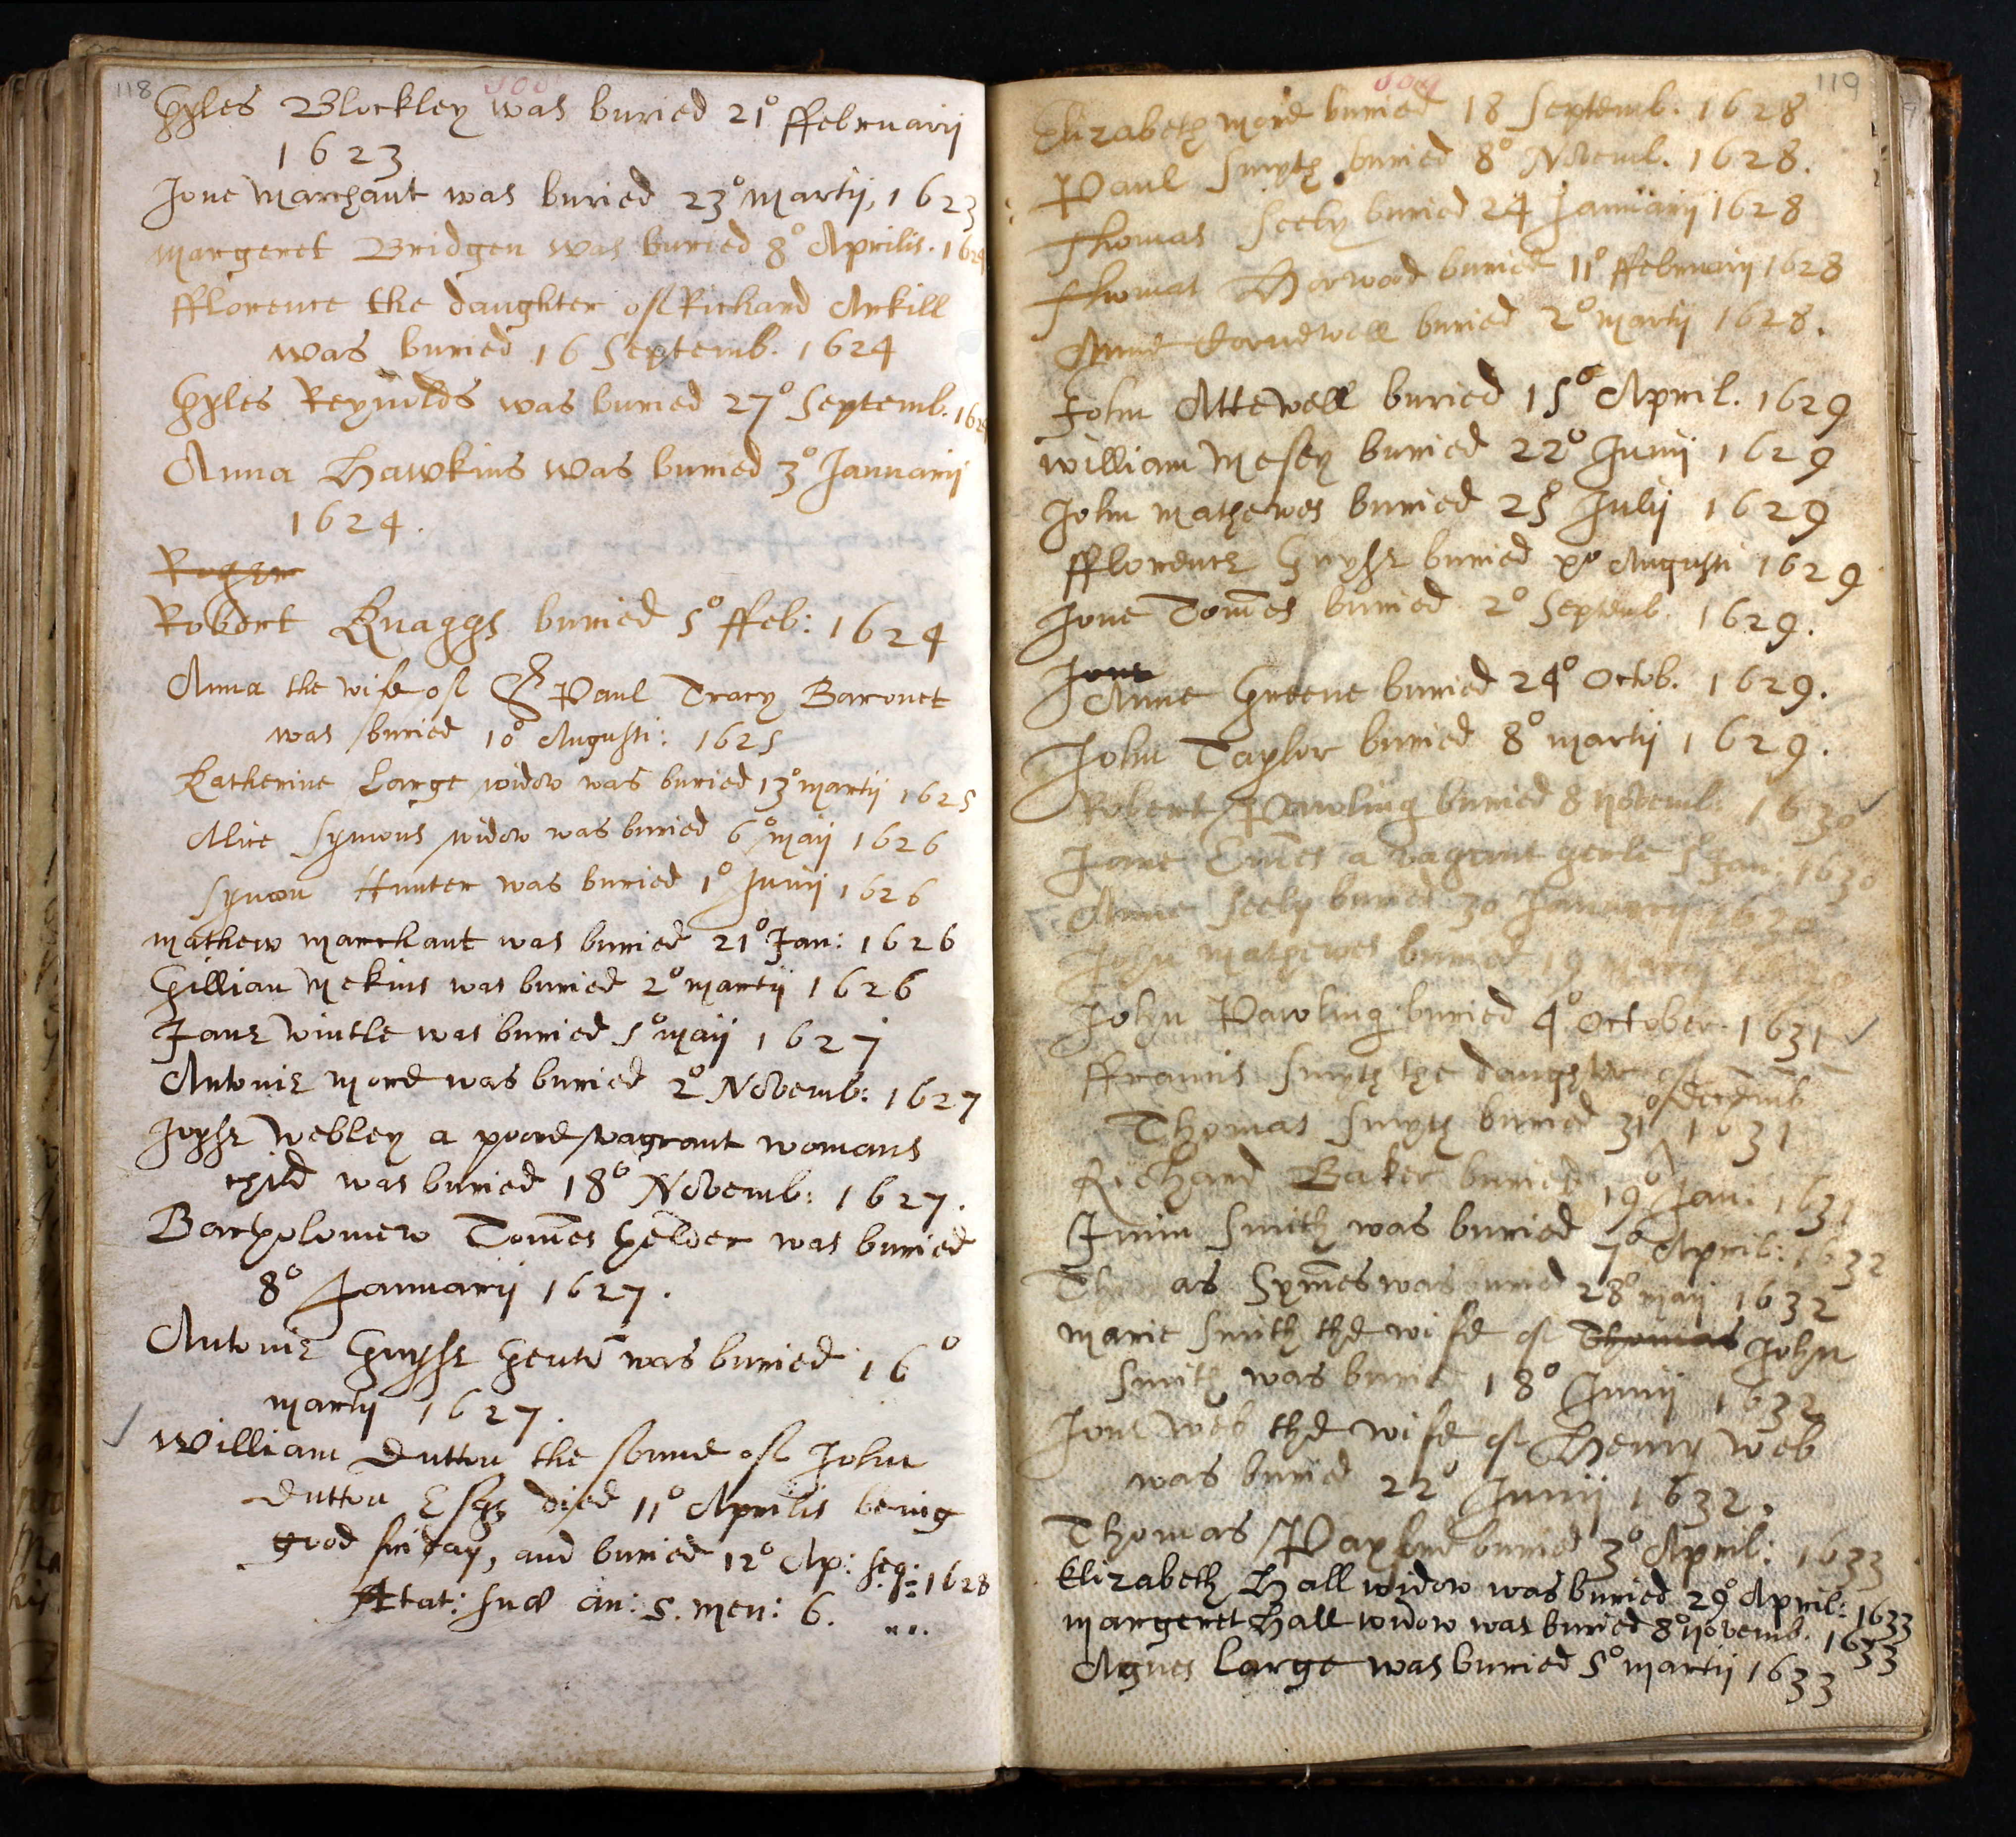 118
Gyles Blockley was buried 21° ffebruarij
1623
Jone Marchant was buried 23° Martij, 1623
Margeret Bridgen was buried 8° Aprilis. 1624
fflorence the daughter of Richard Arkill
was buried 16 Septemb. 1624
Gyles Reynolds was buried 27° Septemb. 1624
Anna Hawkins was buried 3° Januarij
1624.
Roger
Robert Knaggs buried 5° ffeb: 1624
Anna the wife of Sr Paul Tracy Baronet
was buried 10° Augusti: 1625
Katherine Large widow was buried 13° Martij 1625
Alice Symons widow was buried 6° Maij 1626
Symon Hunter was buried 1° Junij 1626
Mathew Marchant was buried 21° Jan: 1626
Gillian Mekins was buried 2° Martij 1626
Jane Wintle was buried 5° Maij 1627
Antonie More was buried 2° Novemb: 1627
Joyse Webley a poore vagrant womans
child was buried 18° Novemb: 1627.
Bartholomew Tom̃es helder was buried
8° Januarij 1627.
Antonie Guyse Gent̃ was buried 16°
Martij 1627.
William Dutton the sonne of John
Dutton Esqz died 11° Aprilis being
good friday, and buried 12° Ap: seq: 1628
Ætat: suæ an: 5. men: 6.
119
Elizabeth More buried 18 Septemb. 1628
Paul Smyth buried 8° Novemb. 1628.
Thomas Seely buried 24 Januarij 1628
Thomas Horwood buried 11° ffebruarij 1628
Anne buried 2° Martij 1628.
John Attewell buried 15° April. 1629
William Mesey buried 22° Junij 1629
John Mathewes buried 25° Julij 1629
fflorence Guyse buried Augusti 1629
Jone Tom̃es buried 2° Septemb. 1629.
Jone
Anne Greene buried 24° Octob. 1629.
John Taylor buried 8° Martij 1629.
Robert Pawling buried 8 Novemb. 1630
Jane Tom̃es a vagrant gerle 5° Jan: 1630
Anne Seely buried 30 Januarij 1630
John Mathewes buried 19 Martij
John Pawling buried 4° October. 1631
ffrancis Smyth the daughter of
Thomas Smyth buried 31° decemb 1631
Richard Baker buried 19° Jan. 1631
Smith was buried 7° April: 1632
Thomas Sym̃es was buried 28° Maij 1632
Marie Smith the wife of Thomas John
Smith was buried 18° Junij 1632
Jone Web the wife of Henry Web
was buried 22° Junij 1632.
Thomas buried 3° April: 1633
Elizabeth Hall widow was buried 29° April: 1633
Margeret Hall widow was buried 8° Novemb. 1633
Agnes Large was buried 5° Martij 1633